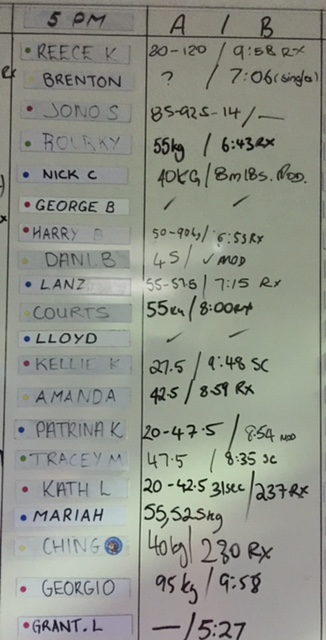 5 PM A / B
REECE K 20-120 / 9:58 RX
BRENTON ? / 7:06 (singles)
JONO S 85-92.5-14 / —
ROURKY 55kg / 6:43 RX
NICK C 40KG / 8m18s. MOD.
GEORGE B ✓ ✓
HARRY B 50-90kg / 6:53 RX
DANI.B 45 / ✓ MOD
LANZ 55-57.5 / 7:15 RX
COURTS 55kg / 8:00 RX
LLOYD ✓ ✓
KELLIE K 27.5 / 9:48 SC
AMANDA 42.5 / 8:59 RX
PATRINA K 20-47.5 / 8:54 MOD
TRACEY M 47.5 / 8:35 SC
KATH L 20-42.5 31sec / 237 RX
MARIAH 55, 52.5kg
CHING 40kg / 230 RX
GEORGIO 95kg / 9:58
GRANT.L — / 5:27